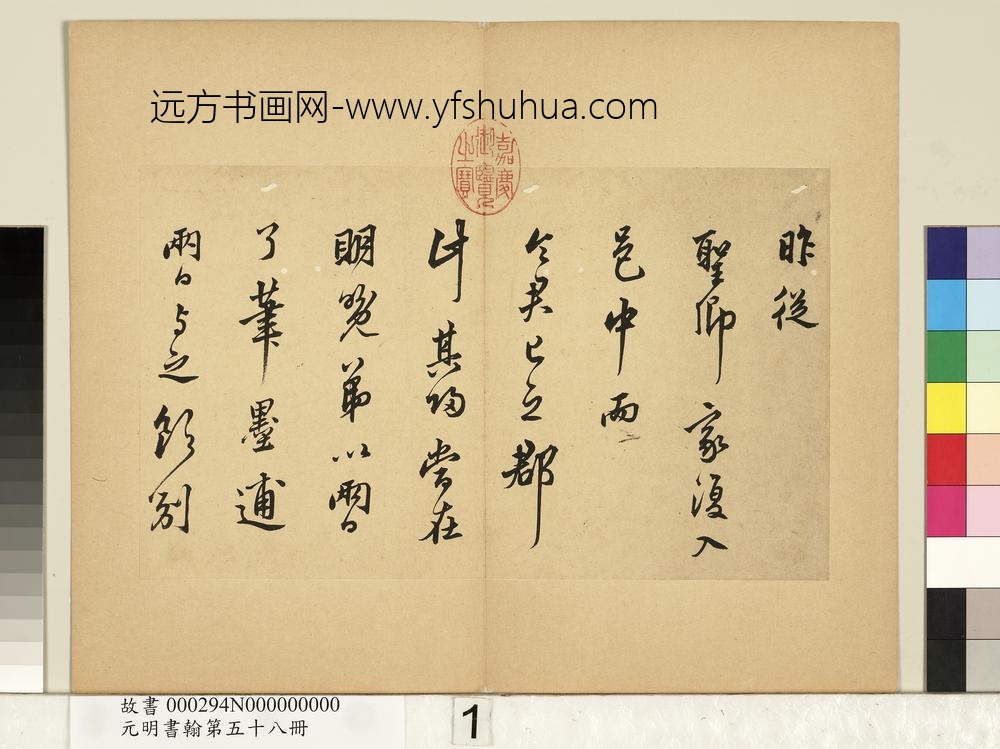 远方书画网-www.yfshuhua.com
嘉慶
御覽
之寶
昨從
聖卿家復入
邑中而
令君已之郡
計其歸當在
明晚弟以兩日
了筆墨逋
兩日与之飲別
故書 000294N000000000
元明書翰第五十八冊
1